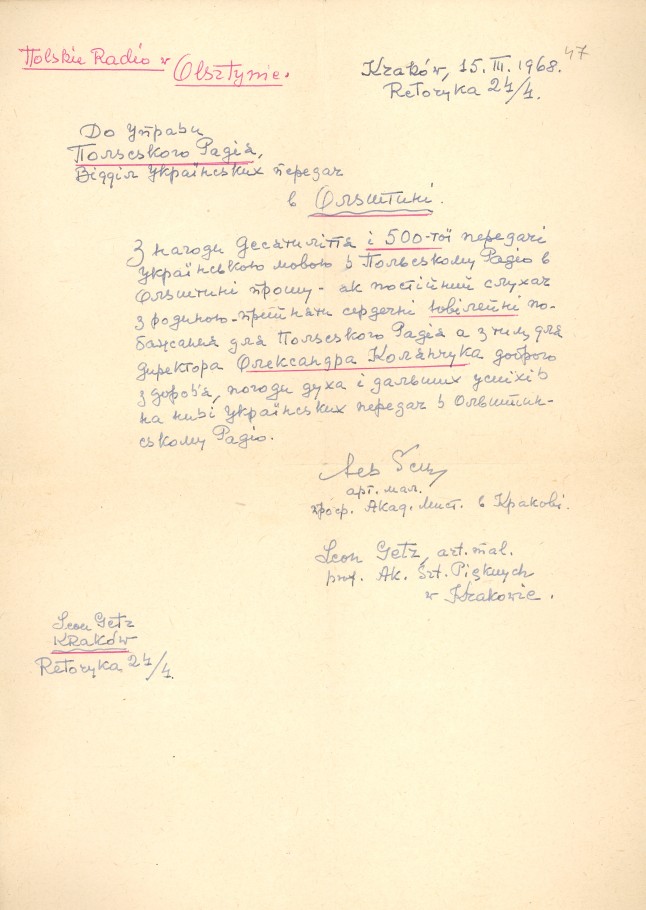 47
Polskie Radio w Olsztynie.
Kraków, 15. III. 1968.
Retoryka 24/4.
До Управи
Польського Радія,
Відділ Українських передач
в Ольштині.
З нагоди десятиліття і 500-тої передачі
Українською мовою в Польському Радіо в
Ольштині прошу - як постійний слухач
з родиною - прийняти сердечні ювілейні по-
бажання для Польського Радія а з тим для
директора Олександра Колянчука доброго
здоров'я, погоди духа і дальших успіхів
на ниві Українських передач в Ольштин-
ському Радіо.
Лев Ґец
арт. мал.
проф. Акад. Мист. в Кракові.
Leon Getz, art. mal.
prof. Ak. Szt. Pięknych
w Krakowie.
Leon Getz
Kraków
Retoryka 24/4.